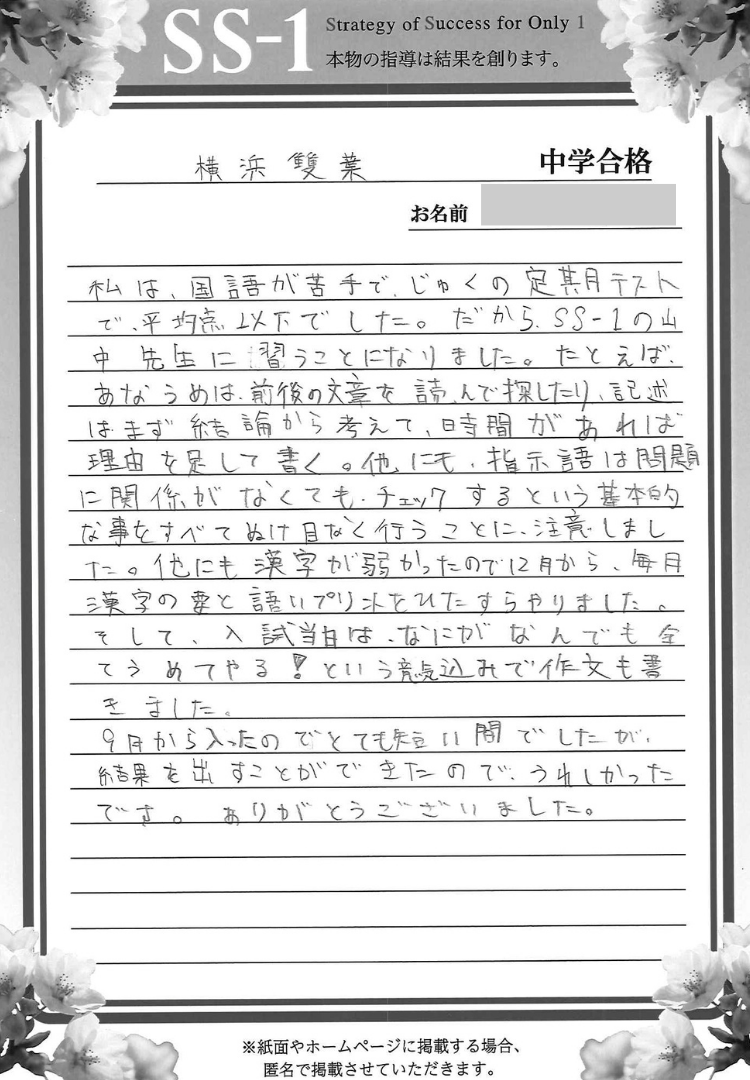 SS-1
Strategy of Success for Only 1
本物の指導は結果を創ります。
横浜雙葉 中学合格
お名前
私は、国語が苦手で、じゅくの定期テスト
で、平均点以下でした。だから、SS-1の山
中先生に習うことになりました。たとえば、
あなうめは、前後の文章を読んで探したり、記述
はまず結論から考えて、時間があれば
理由を足して書く。他にも、指示語は問題
に関係がなくても、チェックするという基本的
な事をすべてぬけ目なく行うことに、注意しまし
た。他にも漢字が弱かったので12月から、毎月
漢字の要と語いプリントをひたすらやりました。
そして、入試当日は、なにがなんでも全
てうめてやる!という意気込みで作文も書
きました。
9月から入ったのでとても短い間でしたが、
結果を出すことができたので、うれしかった
です。ありがとうございました。
※紙面やホームページに掲載する場合、
匿名で掲載させていただきます。